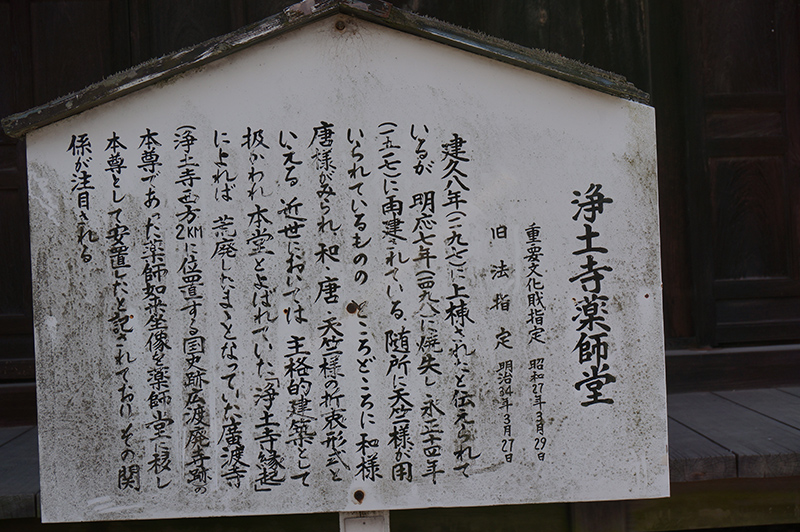 浄土寺薬師堂
重要文化財指定 昭和27年3月29日
旧法指定 明治34年3月27日
建久八年(一一九七)に上棟されたと伝えられて
いるが 明応七年(一四九八)に焼失し 永正十四年
(一五一七)に再建されている、随所に天竺様が用
いられているものの ところどころに和様
唐様がみられ 和、唐、天竺様の折衷形式と
いえる 近世においては 主格的建築として
扱かわれ 本堂とよばれていた「浄土寺縁起」
によれば 荒廃したまゝとなっていた廣渡寺
(浄土寺西方2KMに位置する国史跡広渡廃寺跡)の
本尊であった薬師如来坐像を薬師堂に移し
本尊として安置したと記されておりその関
係が注目される